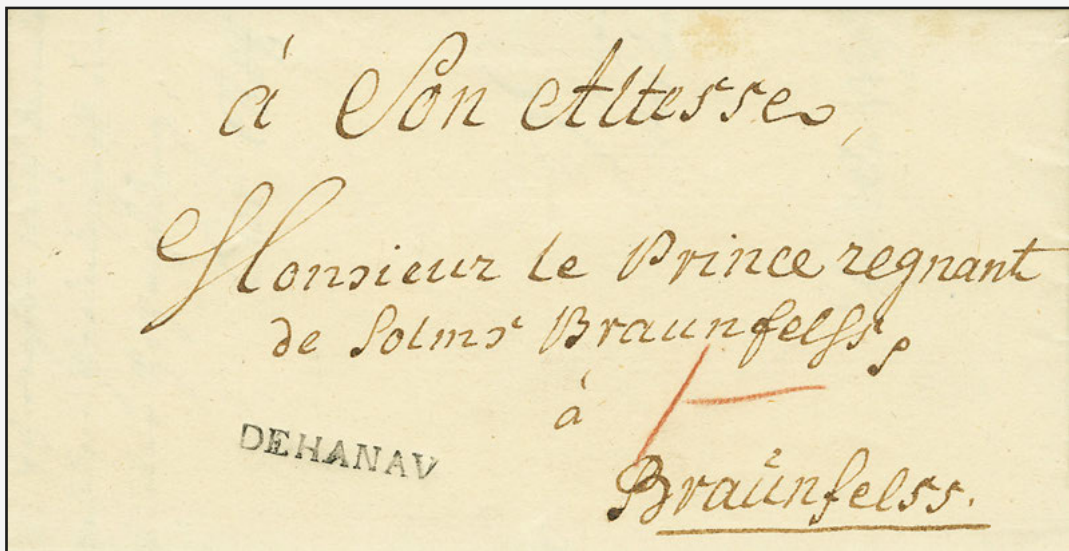 à Son Altesse,
Monsieur le Prince regnant
de Solms Braunfelss,
à
DE HANAV
Braünfelss.